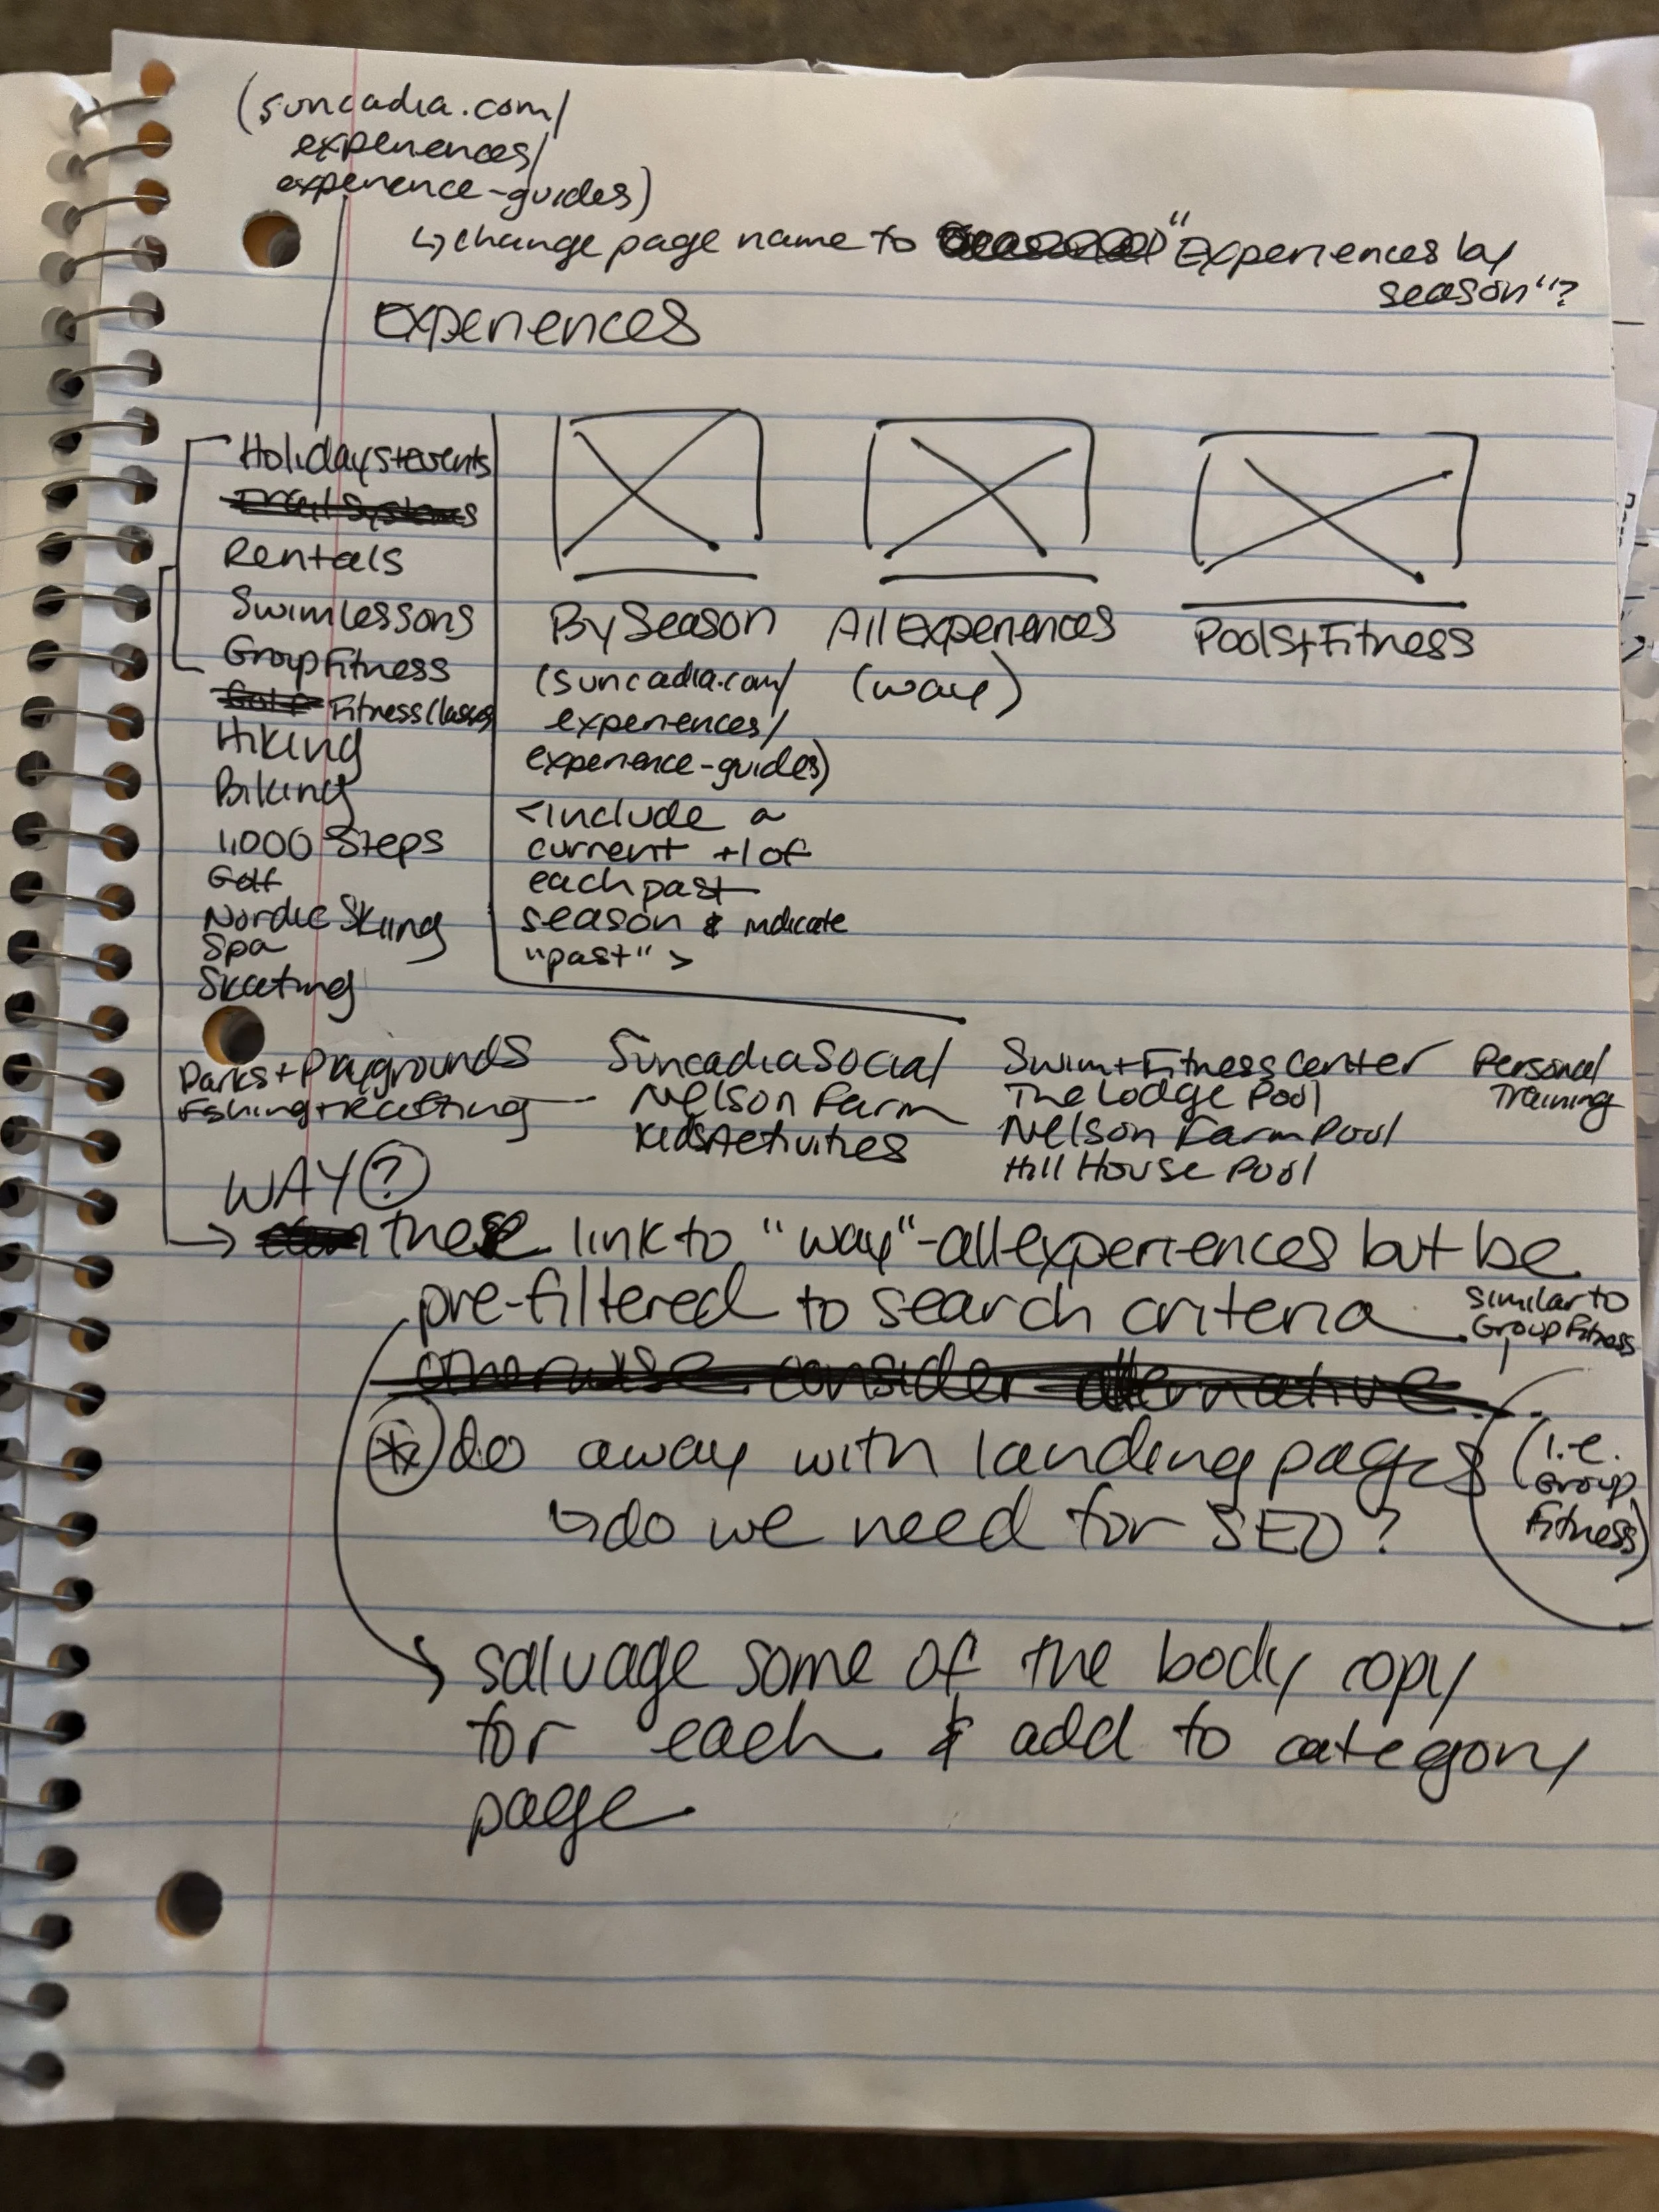 (suncadia.com/
experiences/
experience-guides)
↳ change page name to "Experiences by
season"?
Experiences
Holidays+events
Trail Systems
Rentals
Swim lessons
Group Fitness
Golf Fitness Classes
Hiking
Biking
1,000 Steps
Golf
Nordic Skiing
Spa
Skating
By Season
(suncadia.com/
experiences/
experience-guides)
<include a
current +1 of
each past
season & indicate
"past">
All Experiences
(way)
Pools+Fitness
Parks+Playgrounds
Fishing+Rafting
Suncadia Social
Nelson Farm
Kids Activities
Swim+Fitness Center
The Lodge Pool
Nelson Farm Pool
Hill House Pool
Personal
Training
WAY?
→ these link to "way"-all experiences but be
pre-filtered to search criteria
similar to
Group Fitness
otherwise consider alternative
* do away with landing pages
(i.e.
Group
Fitness)
↳ do we need for SEO?
→ salvage some of the body copy
for each & add to category
page